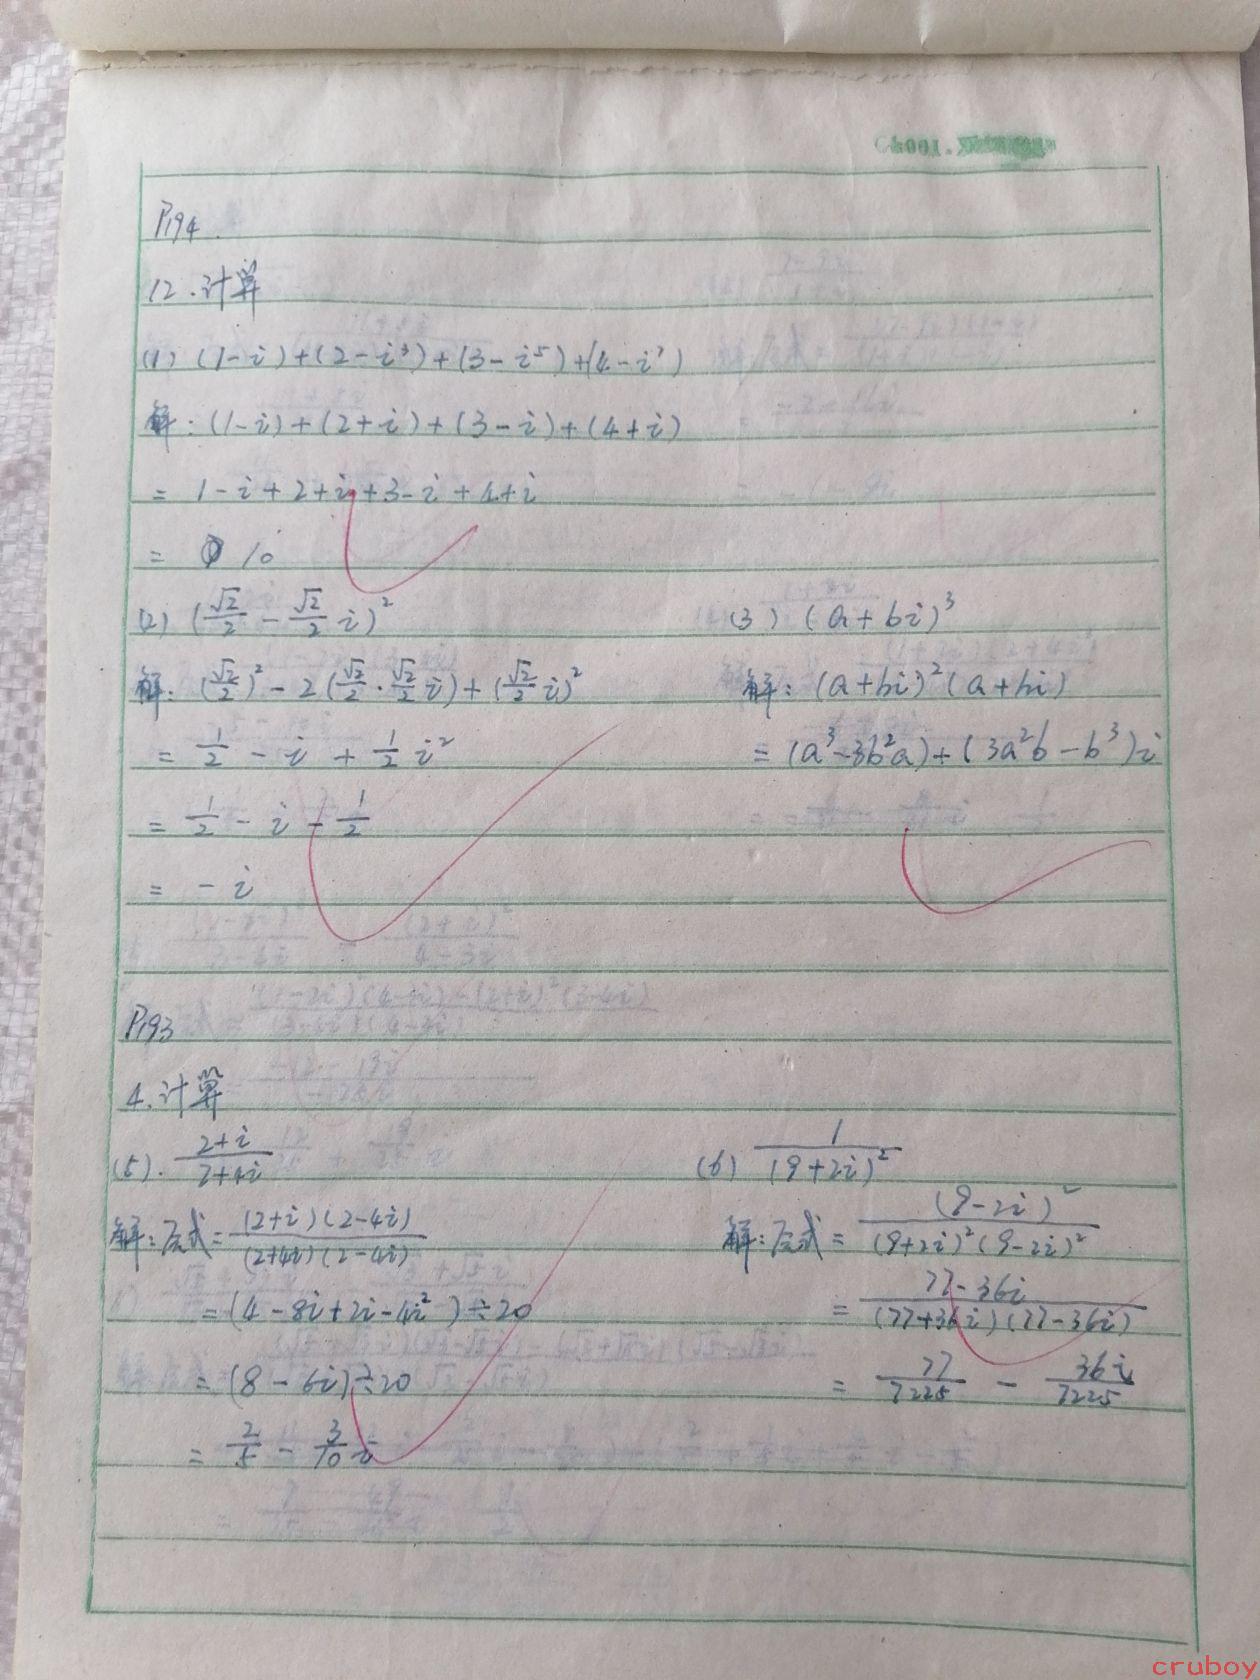 P194
12.计算
(1) (1-i)+(2-i³)+(3-i⁵)+(4-i⁷)
解:(1-i)+(2+i)+(3-i)+(4+i)
= 1-i+2+i+3-i+4+i
= 10
(2) (√2/2 - √2/2 i)²
解:(√2/2)² - 2(√2/2·√2/2 i)+(√2/2 i)²
= 1/2 - i + 1/2 i²
= 1/2 - i - 1/2
= -i
(3) (a+bi)³
解:(a+bi)²(a+bi)
= (a³-3b²a)+(3a²b-b³)i
P193
4.计算
(5). 2+i/2+4i
解:原式= (2+i)(2-4i)/(2+4i)(2-4i)
= (4-8i+2i-4i²)÷20
= (8-6i)÷20
= 2/5 - 3/10 i
(6) 1/(9+2i)²
解:原式= (9-2i)²/(9+2i)²(9-2i)²
= 77-36i/(77+36i)(77-36i)
= 77/7225 - 36i/7225
cruboy